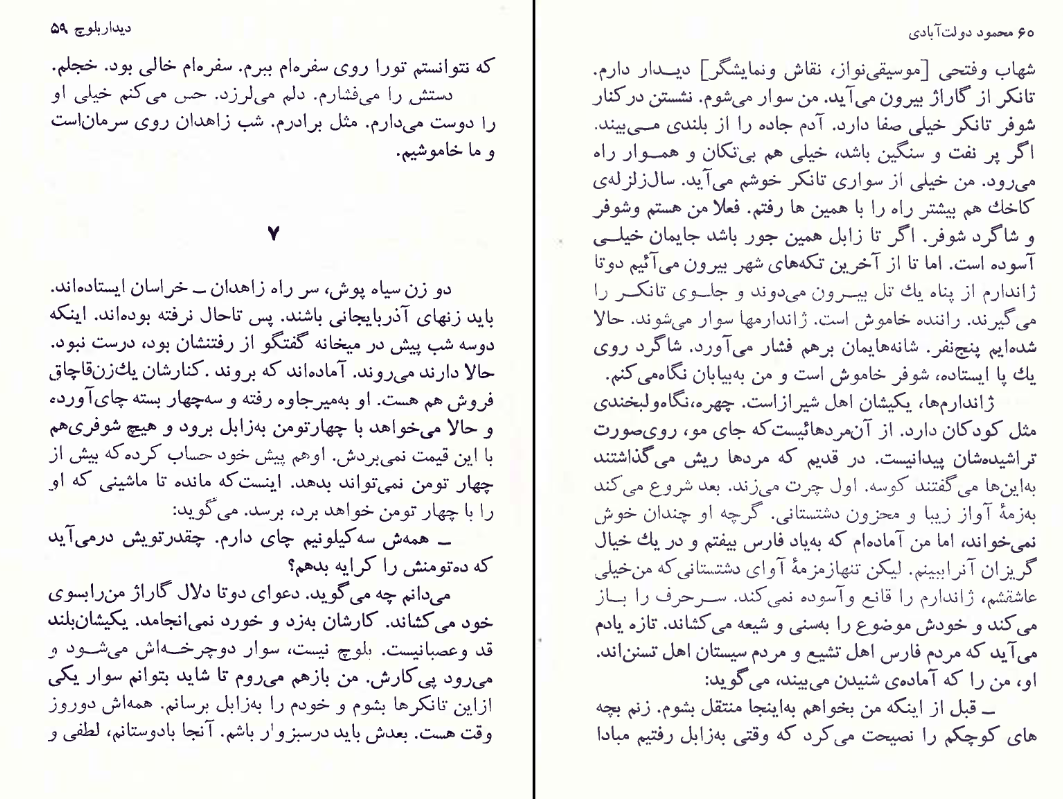 دیدار بلوچ ۵۹
که نتوانستم تورا روی سفره‌ام ببرم. سفره‌ام خالی بود. خجلم.
دستش را می‌فشارم. دلم می‌لرزد. حس می‌کنم خیلی او
را دوست می‌دارم. مثل برادرم. شب زاهدان روی سرمان‌است
و ما خاموشیم.
۷
دو زن سیاه پوش، سر راه زاهدان ــ خراسان ایستاده‌اند.
باید زنهای آذربایجانی باشند. پس تاحال نرفته بوده‌اند. اینکه
دوسه شب پیش در میخانه گفتگو از رفتنشان بود، درست نبود.
حالا دارند می‌روند. آماده‌اند که بروند .کنارشان یك‌زن‌قاچاق
فروش هم هست. او به‌میرجاوه رفته و سه‌چهار بسته چای‌آورده
و حالا می‌خواهد با چهارتومن به‌زابل برود و هیچ شوفری‌هم
با این قیمت نمی‌بردش. اوهم پیش خود حساب کرده‌که بیش از
چهار تومن نمی‌تواند بدهد. اینست‌که مانده تا ماشینی که او
را با چهار تومن خواهد برد، برسد. می‌گوید:
ــ همه‌ش سه‌کیلونیم چای دارم. چقدرتویش درمی‌آید
که ده‌تومنش را کرایه بدهم؟
می‌دانم چه می‌گوید. دعوای دوتا دلال گاراژ من‌رابسوی
خود می‌کشاند. کارشان به‌زد و خورد نمی‌انجامد. یکیشان‌بلند
قد وعصبانیست. بلوچ نیست، سوار دوچرخــه‌اش می‌شــود و
می‌رود پی‌کارش. من بازهم می‌روم تا شاید بتوانم سوار یکی
ازاین تانکرها بشوم و خودم را به‌زابل برسانم. همه‌اش دوروز
وقت هست. بعدش باید درسبزوار باشم. آنجا بادوستانم، لطفی و
۶۰ محمود دولت‌آبادی
شهاب وفتحی [موسیقی‌نواز، نقاش ونمایشگر] دیــدار دارم.
تانکر از گاراژ بیرون می‌آید. من سوار می‌شوم. نشستن درکنار
شوفر تانکر خیلی صفا دارد. آدم جاده را از بلندی مــی‌بیند.
اگر پر نفت و سنگین باشد، خیلی هم بی‌تکان و همــوار راه
می‌رود. من خیلی از سواری تانکر خوشم می‌آید. سال‌زلزله‌ی
کاخك هم بیشتر راه را با همین ها رفتم. فعلا من هستم وشوفر
و شاگرد شوفر. اگر تا زابل همین جور باشد جایمان خیلــی
آسوده است. اما تا از آخرین تکه‌های شهر بیرون می‌آئیم دوتا
ژاندارم از پناه یك تل بیــرون می‌دوند و جلــوی تانکــر را
می‌گیرند. راننده خاموش است. ژاندارمها سوار می‌شوند. حالا
شده‌ایم پنج‌نفر. شانه‌هایمان برهم فشار می‌آورد. شاگرد روی
یك پا ایستاده، شوفر خاموش است و من به‌بیابان نگاه‌می‌کنم.
ژاندارم‌ها، یکیشان اهل شیرازاست. چهره،نگاه‌ولبخندی
مثل کودکان دارد. از آن‌مردهائیست‌که جای مو، روی‌صورت
تراشیده‌شان پیدانیست. در قدیم که مردها ریش می‌گذاشتند
به‌این‌ها می‌گفتند کوسه. اول چرت می‌زند. بعد شروع می‌کند
به‌زمۀ آواز زیبا و محزون دشتستانی. گرچه او چندان خوش
نمی‌خواند، اما من آماده‌ام که به‌یاد فارس بیفتم و در یك خیال
گریزان آنراببینم. لیکن تنهازمزمۀ آوای دشتستانی‌که من‌خیلی
عاشقشم، ژاندارم را قانع وآسوده نمی‌کند. ســرحرف را بــاز
می‌کند و خودش موضوع را به‌سنی و شیعه می‌کشاند. تازه یادم
می‌آید که مردم فارس اهل تشیع و مردم سیستان اهل تسنن‌اند.
او، من را که آماده‌ی شنیدن می‌بیند، می‌گوید:
ــ قبل از اینکه من بخواهم به‌اینجا منتقل بشوم. زنم بچه
های کوچکم را نصیحت می‌کرد که وقتی به‌زابل رفتیم مبادا